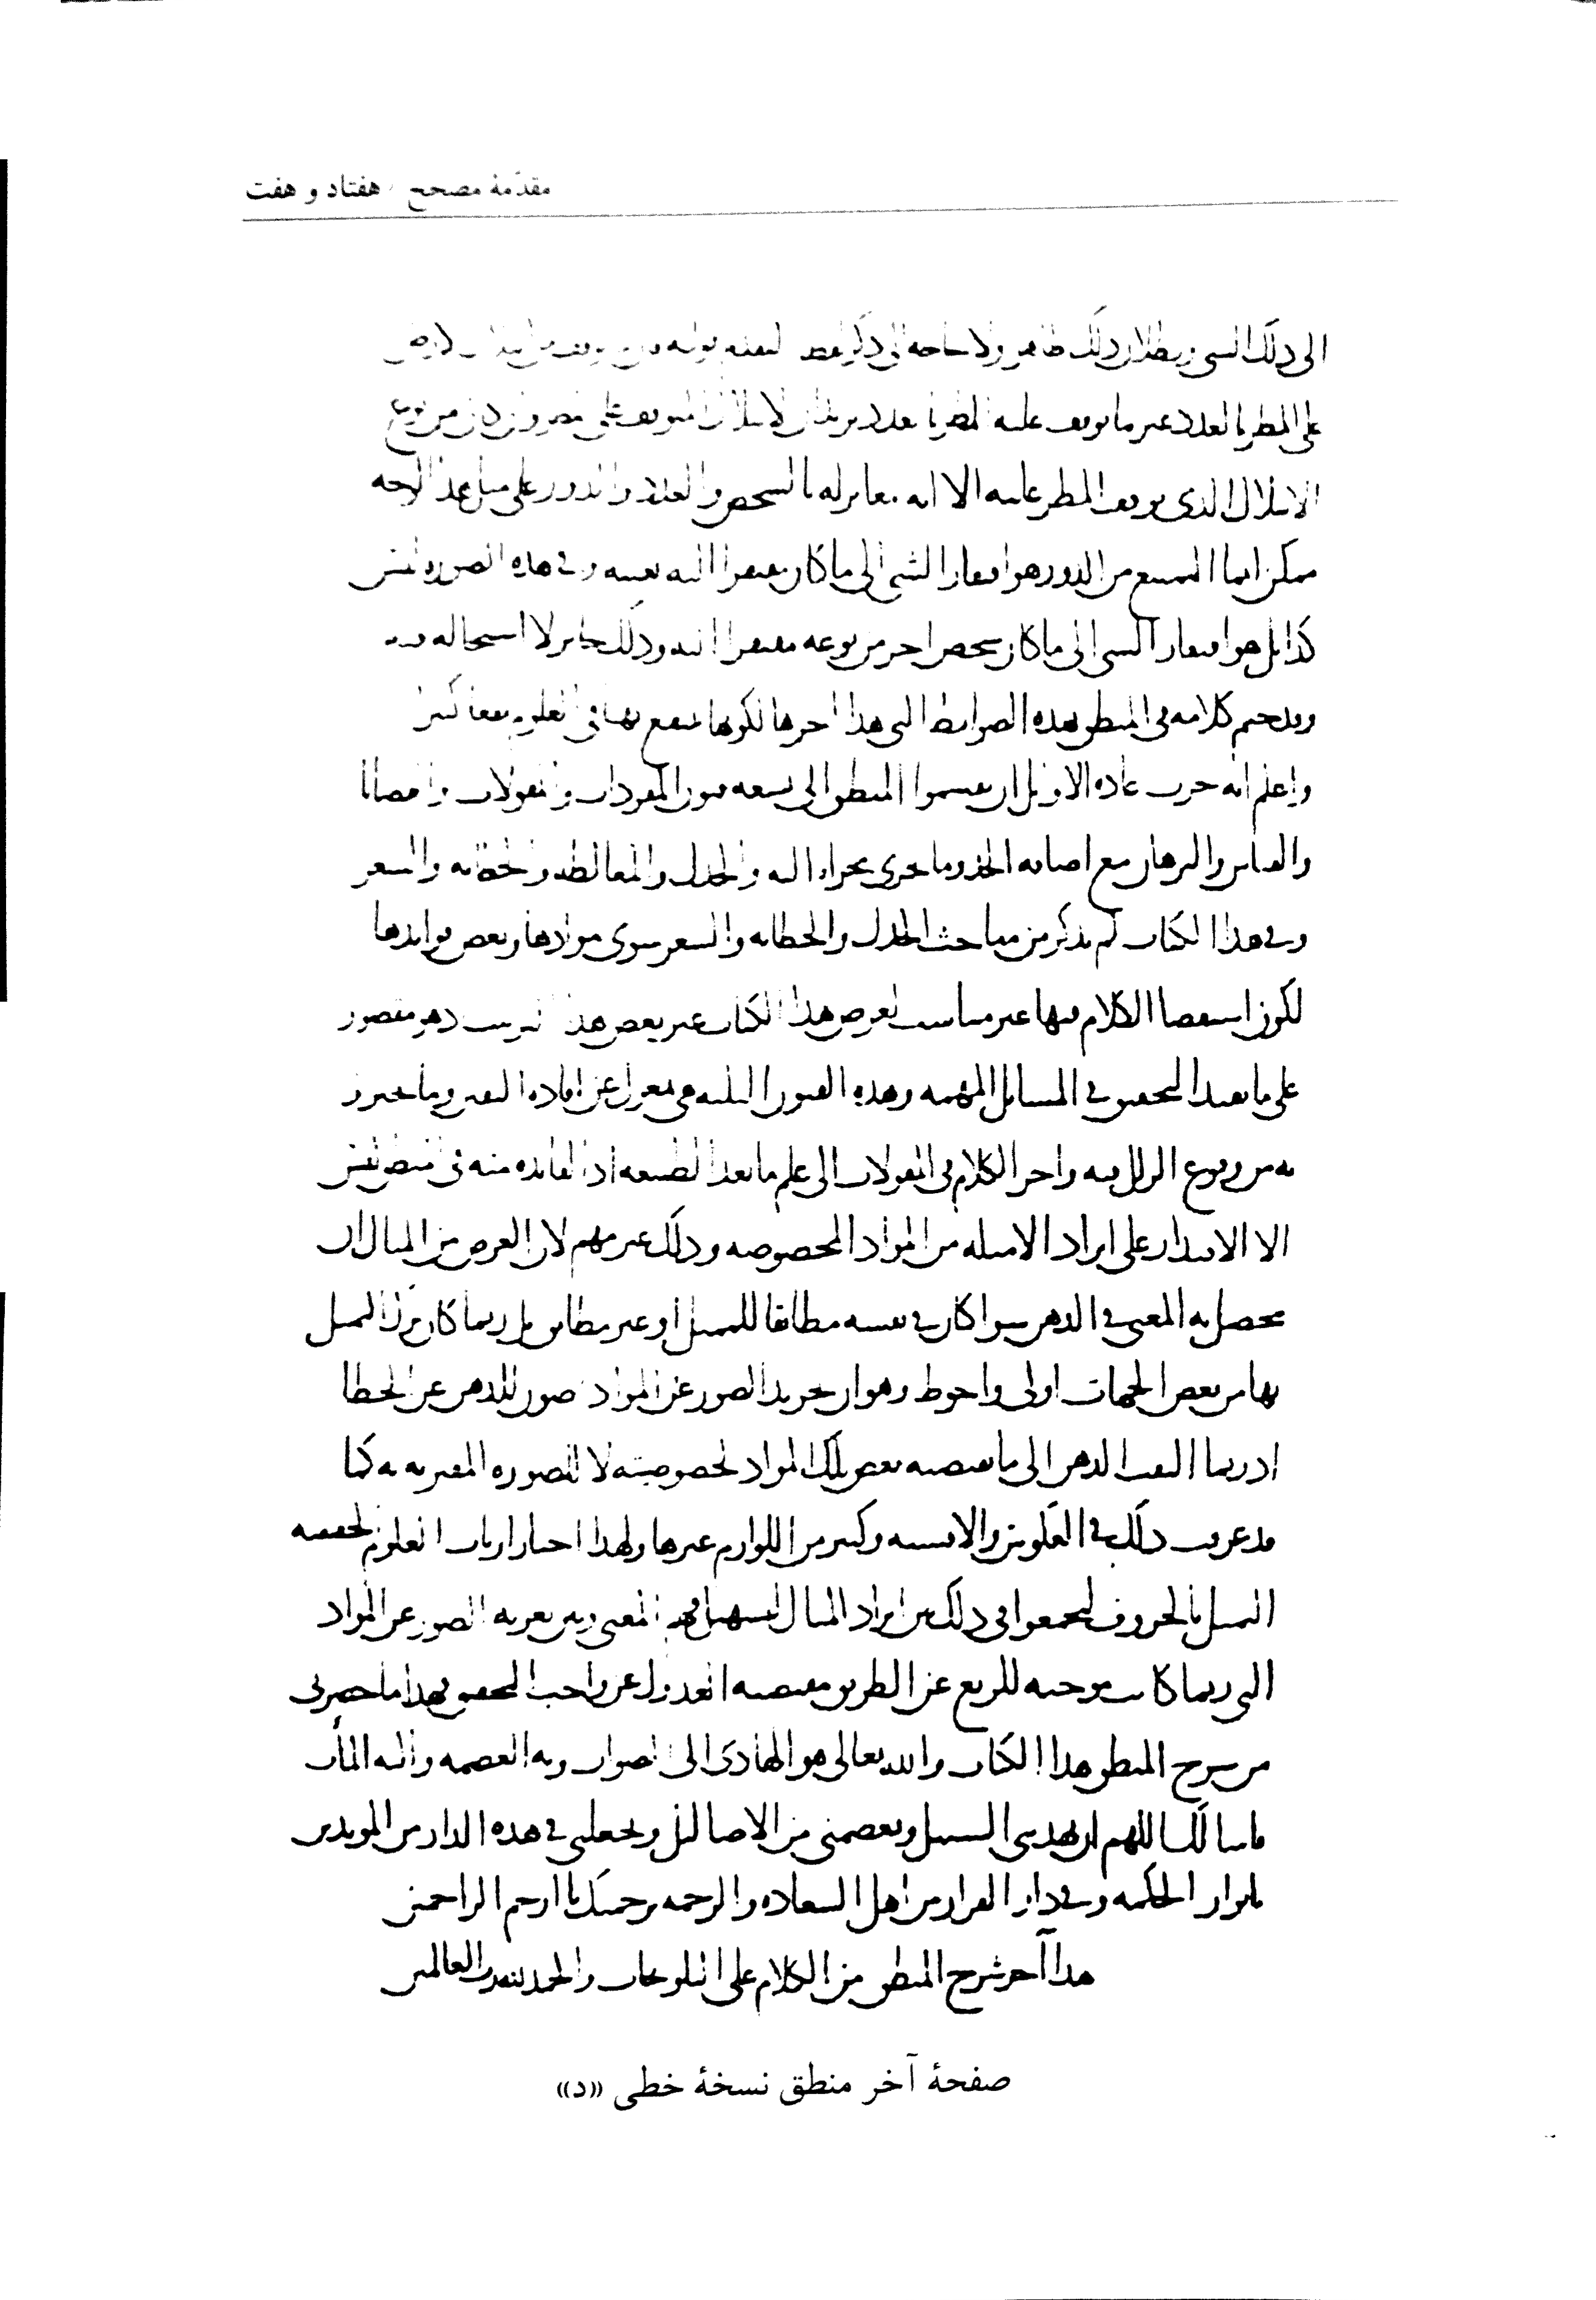 مقدّمهٔ مصحح / هفتاد و هفت
الى ذلك الشى وبطلان ذلك ظاهر ولا حاجة الى
على المطر بالعدد غير ما توقف عليه المطر
الابتلال الذى توقف المطر عليه الا انه مغاير له بالشخص والعدد والدور على مثل هذا الوجه
ممكن انما الممتنع من الدور هو افتقار الشى الى ما كان مفتقرا اليه بعينه وفى هذه الصورة ليس
كذا بل هو افتقار الشى الى ما كان شخص اخر من نوعه مفتقرا اليه وذلك جايز لا استحاله فيه
وقد ختم كلامه فى المنطق بهذه الضوابط التى هذا اخرها لكونها ينتفع بها فى العلوم نفعا كثيرا
واعلم انه جرت عادة الاولين ان يقسموا المنطق الى تسعة فنون المفردات والمقولات والقضايا
والقياس والبرهان مع اضافة الحد وما جرى مجراه اليه والجدل والمغالطة والخطابه والشعر
وفى هذا الكتاب لم يذكر من مباحث الجدل والخطابه والشعر سوى موادها وبعض فوايدها
لكون استقصا الكلام فيها غير مناسب لغرض هذا الكتاب
على ما يفيد التحقيق فى المسايل المهمه وهذه الفنون الثلثه هى بمعزل عن افادة اليقين وما يحترز
به من وقوع الزلل فيه واخر الكلام فى المقولات الى علم ما بعد الطبيعه اذ الفايده منه فى المنطق ليس
الا الاقتدار على ايراد الامثله من المواد المخصوصه وذلك غير مهم لان الغرض من المثال ان
يحصل به المعنى فى الذهن سوا كان فى نفسه مطابقا للممثل او غير مطابق بل ربما كان ترك التمثيل
بها من بعض الجهات اولى واحوط وهو ان تجريد الصور عن المواد صون للذهن عن الخطا
اذ ربما التفت الذهن الى ما يقتضيه بعض تلك المواد لخصوصيته لا للصورة المقترنه به كما
قد عرفت ذلك فى العكوس والاقيسه وكثير من اللوازم غيرها ولهذا اختار ارباب العلوم الحقيقيه
التمثيل بالحروف ليجمعوا فى ذلك بين ايراد المثال لتسهيل فهم المعنى وبين تعرية الصور عن المواد
التى ربما كانت موجبه للزيغ عن الطريق مقتضيه العدول عن واجب التحقيق فهذا ما حضرنى
من شرح المنطق هذا الكتاب والله تعالى هو الهادى الى الصواب وبه العصمه واليه المآب
فاسالك اللهم ان تهدينى السبيل وتعصمنى من الاضاليل وتجعلنى فى هذه الدار من المويدين
بانوار الحكمه وفى دار القرار من اهل السعاده والرحمه برحمتك يا ارحم الراحمين
هذا آخر شرح المنطق من الكلام على التلويحات والحمد لله رب العالمين
صفحهٔ آخر منطق نسخهٔ خطى «د»